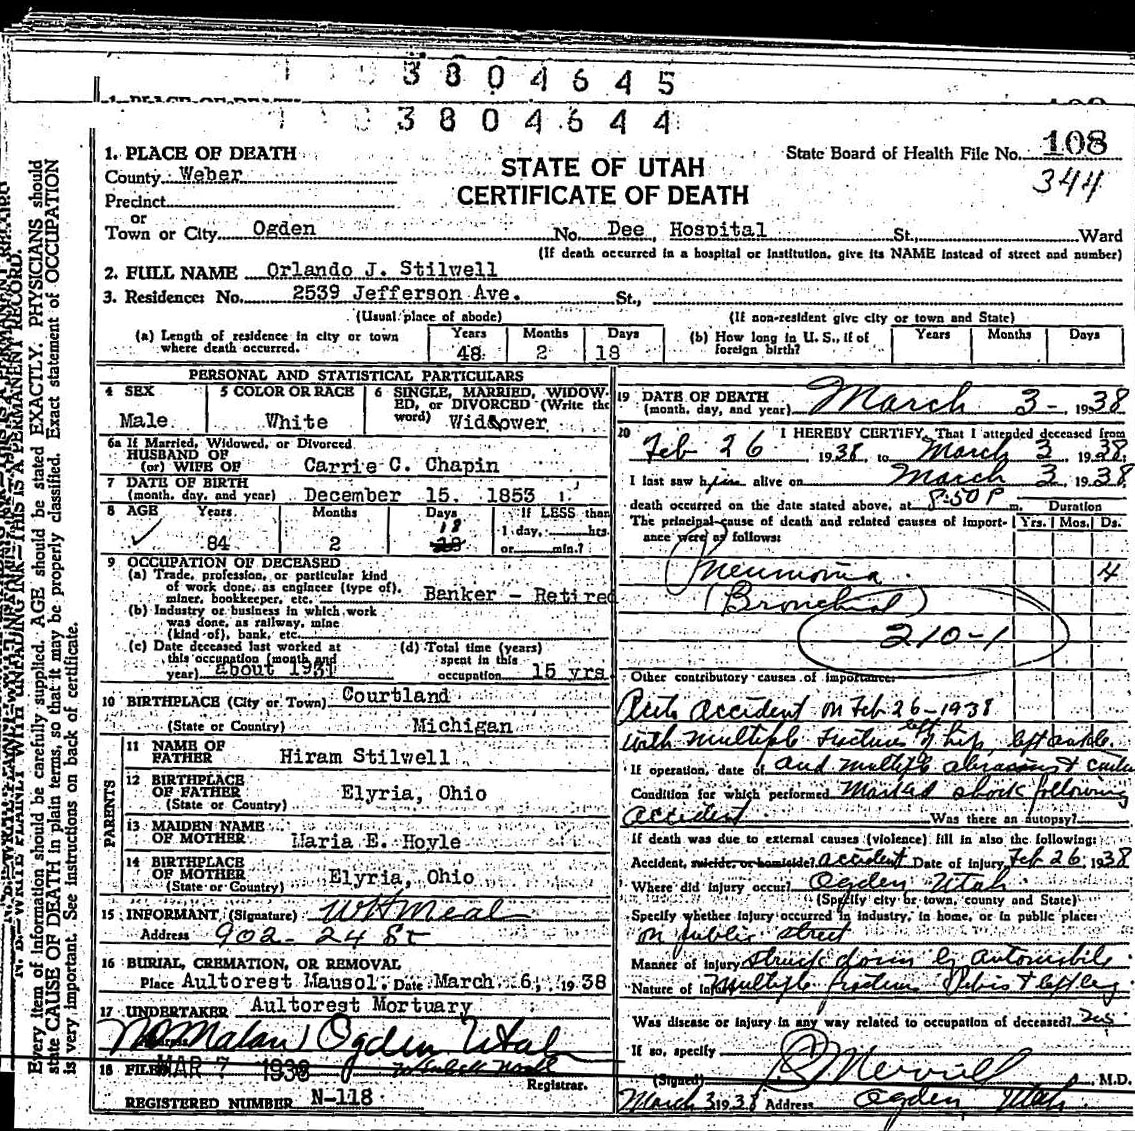 3804645
3804644
1. PLACE OF DEATH
STATE OF UTAH
CERTIFICATE OF DEATH
State Board of Health File No. 108
344
County Weber
Precinct
or
Town or City Ogden No. Dee Hospital St., Ward
(If death occurred in a hospital or institution, give its NAME instead of street and number)
2. FULL NAME Orlando J. Stilwell
3. Residence: No. 2539 Jefferson Ave. St.,
(Usual place of abode) (If non-resident give city or town and State)
(a) Length of residence in city or town where death occurred. Years 48 Months 2 Days 18
(b) How long in U. S., if of foreign birth? Years Months Days
PERSONAL AND STATISTICAL PARTICULARS
4 SEX Male
5 COLOR OR RACE White
6 SINGLE, MARRIED, WIDOWED, or DIVORCED (Write the word) Widower
6a If Married, Widowed, or Divorced
HUSBAND OF
(or) WIFE OF Carrie C. Chapin
7 DATE OF BIRTH
(month, day, and year) December 15, 1853
8 AGE Years 84 Months 2 Days 18 If LESS than 1 day, hrs. or min.?
9 OCCUPATION OF DECEASED
(a) Trade, profession, or particular kind
of work done, as engineer (type of),
miner, bookkeeper, etc. Banker - Retired
(b) Industry or business in which work
was done, as railway, mine
(kind of), bank, etc.
(c) Date deceased last worked at
this occupation (month and
year) about 1931
(d) Total time (years)
spent in this
occupation 15 yrs
10 BIRTHPLACE (City or Town) Courtland
(State or Country) Michigan
PARENTS
11 NAME OF
FATHER Hiram Stilwell
12 BIRTHPLACE
OF FATHER Elyria, Ohio
(State or Country)
13 MAIDEN NAME
OF MOTHER Maria E. Hoyle
14 BIRTHPLACE
OF MOTHER Elyria, Ohio
(State or Country)
15 INFORMANT (Signature) W H Meal
Address 902 - 24 St
16 BURIAL, CREMATION, OR REMOVAL
Place Aultorest Mausol. Date March 6, 1938
17 UNDERTAKER Aultorest Mortuary
Ogden Utah
18 FILED MAR 7 1938
Registrar.
REGISTERED NUMBER N-118
19 DATE OF DEATH
(month, day, and year) March 3 - 1938
20 I HEREBY CERTIFY, That I attended deceased from
Feb 26 1938, to March 3 1938.
I last saw him alive on March 3, 1938
death occurred on the date stated above, at 8:50 P m. Duration
The principal cause of death and related causes of importance were as follows: Yrs. Mos. Ds.
Pneumonia 4
(Bronchial)
210-1
Other contributory causes of importance:
Auto accident on Feb 26 - 1938
with multiple fractures of left hip, left ankle
If operation, date of and multiple abrasions &
Condition for which performed Marked shock following
accident. Was there an autopsy?
If death was due to external causes (violence) fill in also the following:
Accident, suicide, or homicide? accident Date of injury Feb 26 1938
Where did injury occur? Ogden Utah
(Specify city or town, county and State)
Specify whether injury occurred in industry, in home, or in public place:
on public street
Manner of injury struck down by automobile
Nature of Injury multiple fractures Pelvis & left leg
Was disease or injury in any way related to occupation of deceased?
If so, specify
(Signed) Merrill, M.D.
March 3 1938 Address Ogden Utah
WRITE PLAINLY WITH UNFADING INK—THIS IS A PERMANENT RECORD.
Every item of information should be carefully supplied. AGE should be stated EXACTLY. PHYSICIANS should
state CAUSE OF DEATH in plain terms, so that it may be properly classified. Exact statement of OCCUPATION
is very important. See instructions on back of certificate.